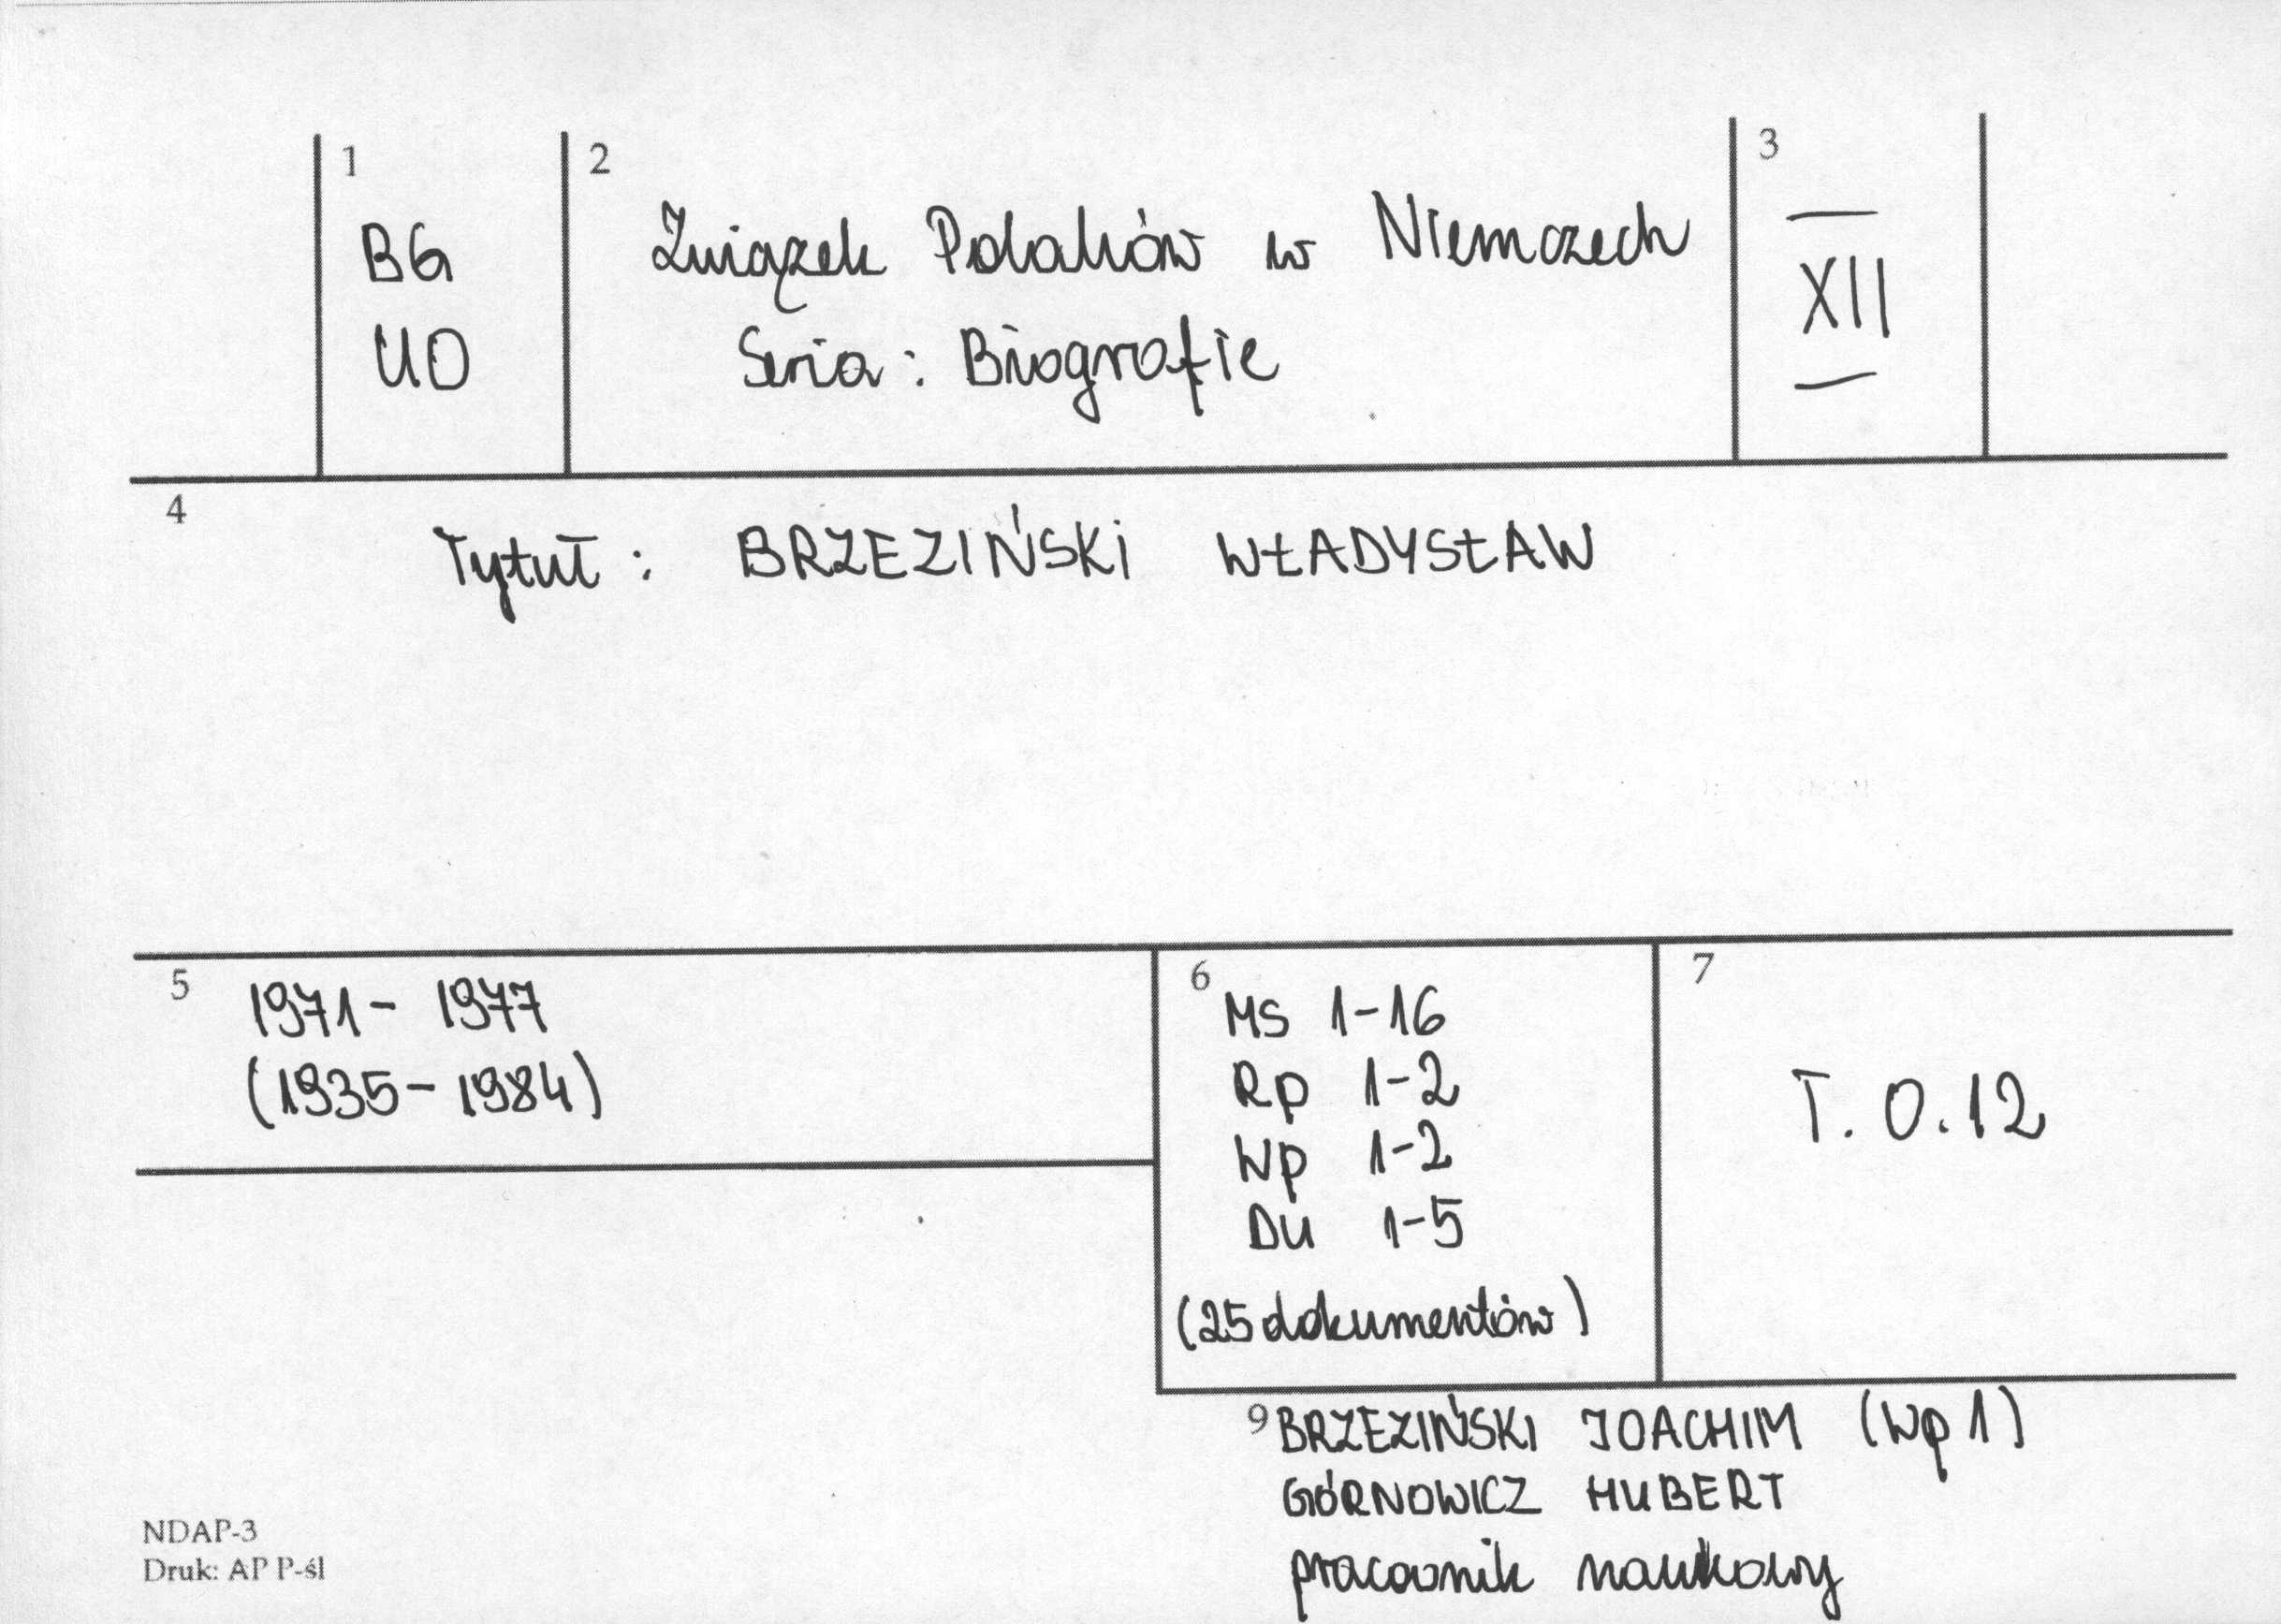 1
BG
UO
2
Związek Polaków w Niemczech
Seria: Biografie
3
XII
4
Tytuł: BRZEZIŃSKI WŁADYSŁAW
5
1971 - 1977
(1935 - 1984)
6
MS 1-16
Rp 1-2
Wp 1-2
DU 1-5
(25 dokumentów)
7
T. O. 12
9 BRZEZIŃSKI JOACHIM (Wp 1)
GÓRNOWICZ HUBERT
pracownik naukowy
NDAP-3
Druk: AP P-śl